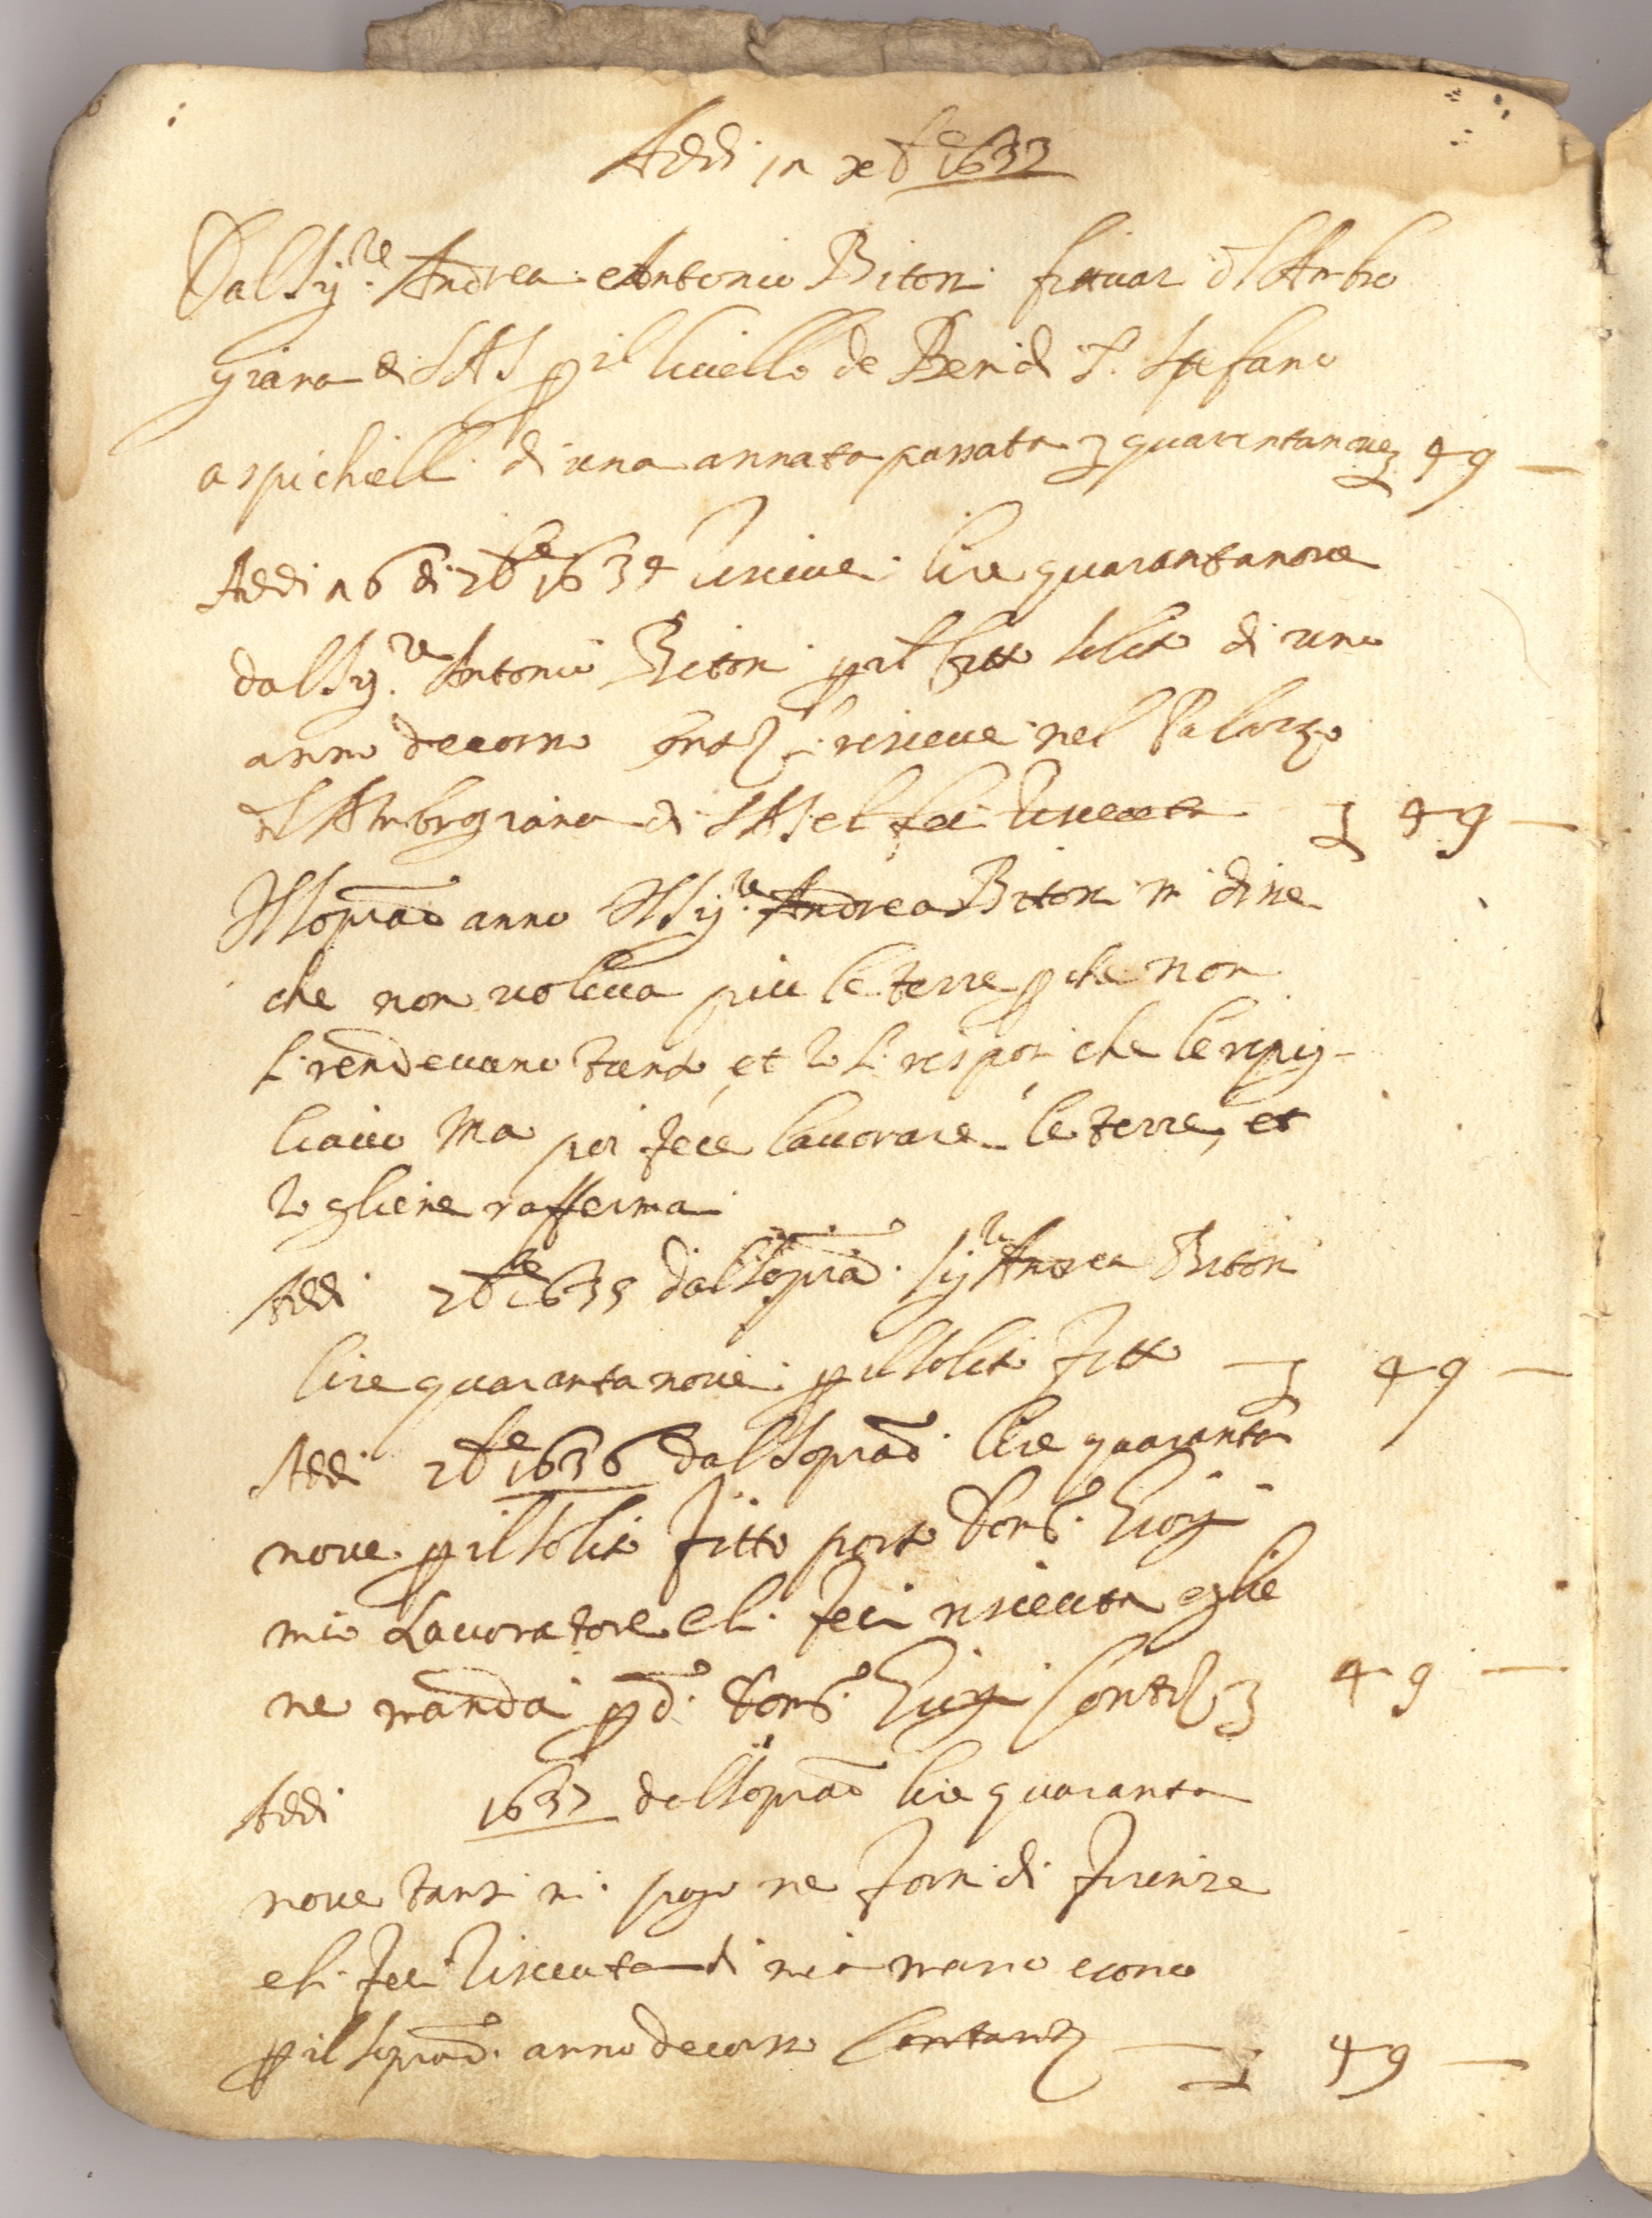 Addi 12 xbre 1633
Dal Sigre Andrea e Antonio Bitoni fittuar dl Ambro
giana di SAS p il livello de Beni di S. Stefano
a spichieli di una annata passata £ quarantanove £ 49 —
Addi 16 di 7bre 1634 riceve lire quarantanove
dal Sigre Antonio Bitoni p il fitto solito di uno
anno decorso riceve nel Palazzo
dl Ambrogiana di SAS e li feci riceuta £ 49 —
Il soprado anno Il Sigre Andrea Bitoni mi disse
che non voleva piu le terre p che non
li rendevano tanto, et Io li risposi che le ripig-
liavo Ma poi fece lavorare le terre, et
Io gliene raffermai
Addi 7bre 1635 dal soprado Sigre Andrea Bitoni
lire quarantanove p il solito fitto — £ 49 —
Addi 7bre 1636 dal soprado lire quaranta
nove p il solito fitto porto
mio Lavoratore e li feci riceuta e glie
ne mandai p do. £ 49 —
Addi 1637 dal soprado lire quaranta
nove tanti mi pago ne forni di Firenze
e li feci riceuta di mia mano e sono
p il soprado. anno decorso Contanti — £ 49 —